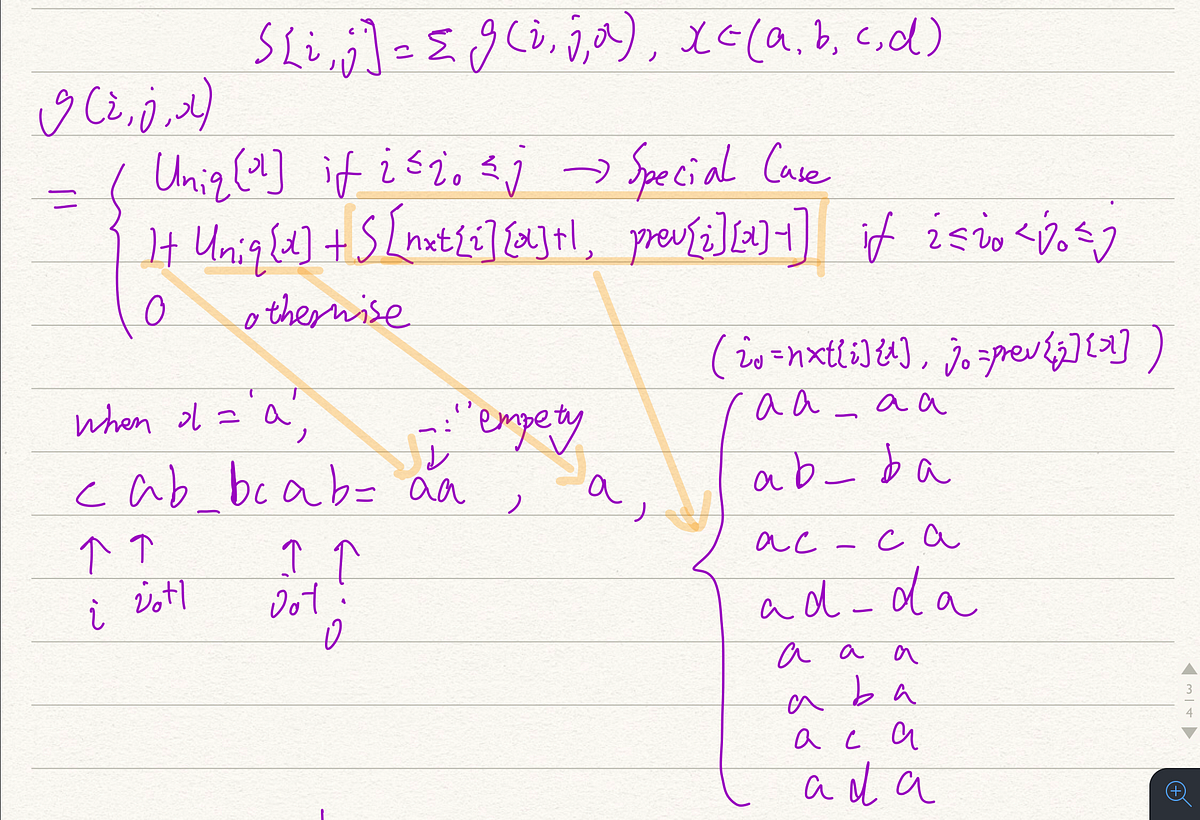 S[i,j] = Σ g(i,j,x), x∈(a,b,c,d)
g(i,j,x)
= { Uniq[x] if i≤i₀≤j → Special Case
1+ Uniq[x] + S[nxt[i][x]+1, prev[i][x]-1] if i≤i₀<j₀≤j
0 otherwise
(i₀=nxt[i][x], j₀=prev[j][x])
when x = 'a',
_:'' empety
c ab_bcab= aa, a, {
↑ ↑ ↑ ↑
i i₀+1 j₀-1 j
aa_aa
ab_ba
ac_ca
ad_da
a a a
a b a
a c a
a d a
3
4